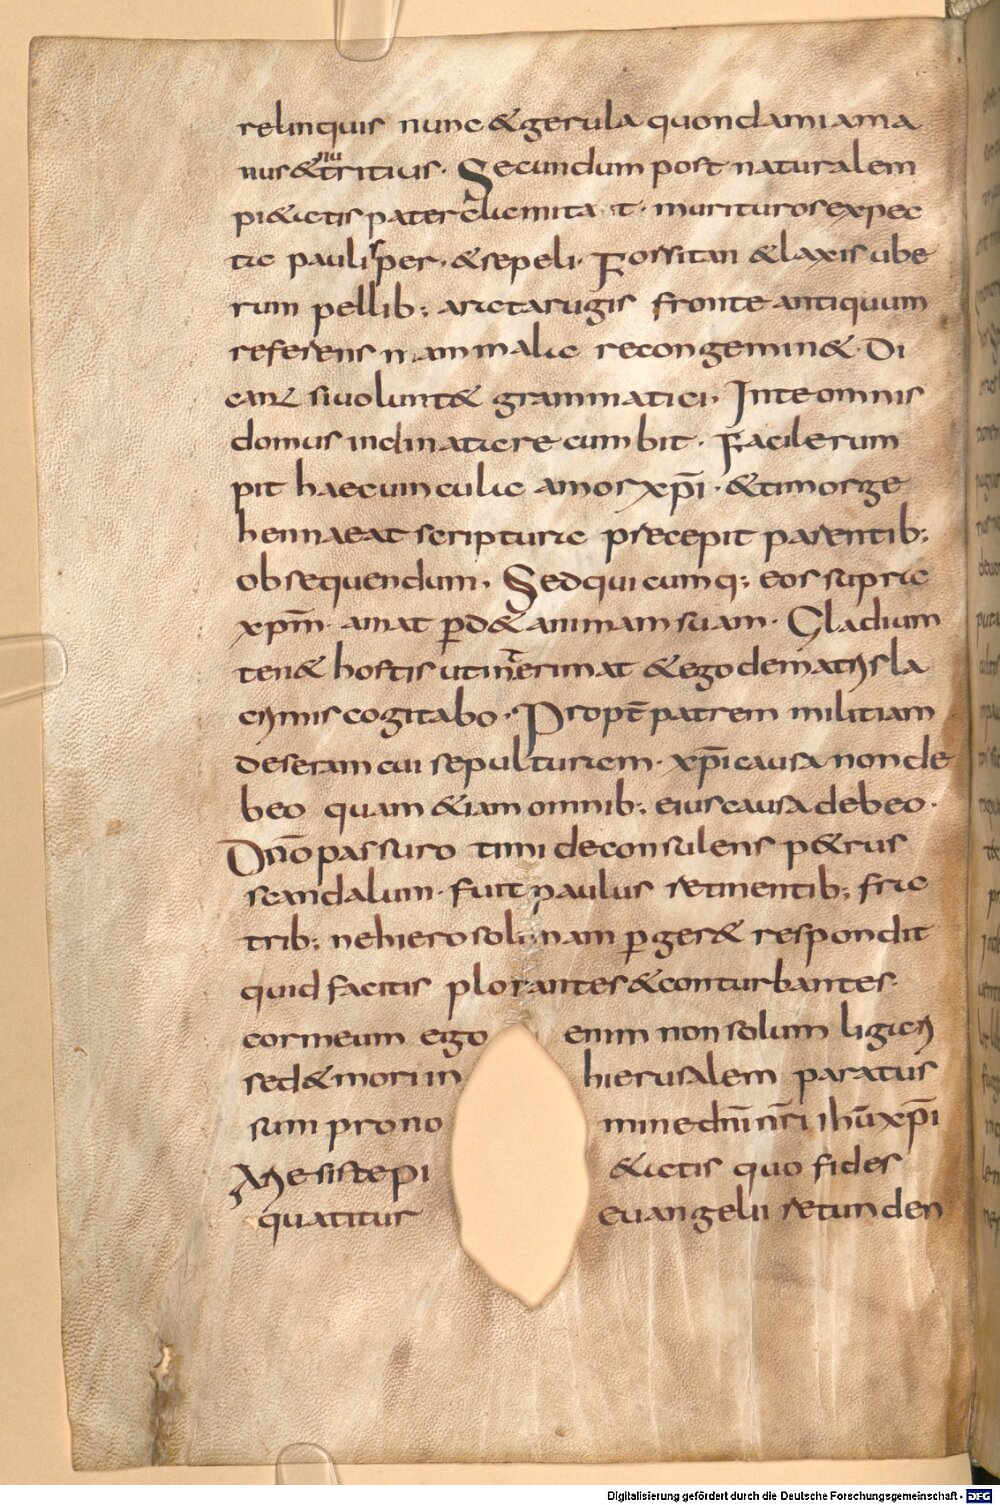 relinquis nunc & gerula quondam iam a
nus & nutritius. Secundum post naturalem
pi&atis pater clamitat. murituros expec
ta paulisper. & sepeli. Forsitan & laxis ube
rum pellib; arata rugis fronte antiquum
referens mammalia recongemin&. Di
cant si volunt & grammatici. In te omnis
domus inclinata recumbit. Facile rum
pit haec uincula amor xpi. & timor ge
hennae at scriptura precepit parentib;
obsequendum. Sed quicumq; eos supra
xpm amat perd& animam suam. Gladium
ten& hostis ut me perimat & ego de matris la
crimis cogitabo. Propt patrem militiam
deseram cui sepulturam xpi causa non de
beo quam &iam omnib; eius causa debeo.
Dno passuro timide consulens p&rus
scandalum fuit paulus retinentib; fra
trib; ne hierosolimam perger& respondit
quid facitis plorantes & conturbantes
cor meum ego enim non solum ligari
sed & mori in hierusalem paratus
sum pro nomine dni nri ihu xpi
Aries iste pi&atis quo fides
quatitur euangelii retunden
Digitalisierung gefördert durch die Deutsche Forschungsgemeinschaft - DFG